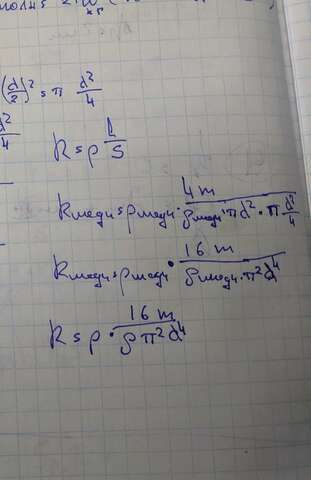 (d/2)² = π d²/4
d²/4
R = ρ L/S
Rмеди = ρмеди · 4m / ρмеди · πd² · π d²/4
Rмеди = ρмеди · 16m / ρмеди · π²d⁴
R = ρ · 16m / ρπ²d⁴